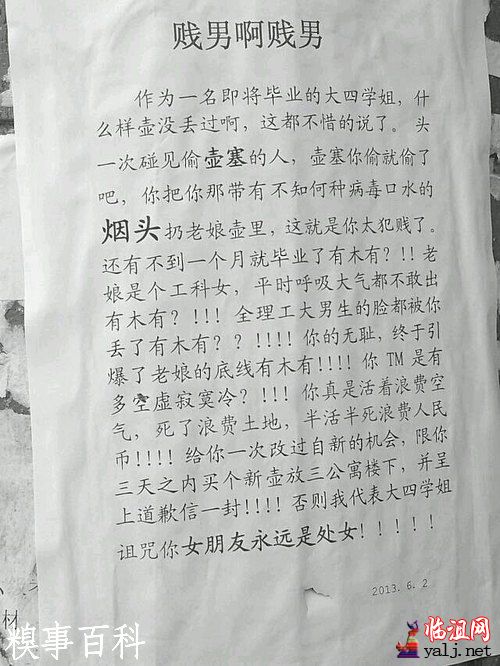 贱男啊贱男
作为一名即将毕业的大四学姐，什
么样壶没丢过啊，这都不惜的说了。头
一次碰见偷壶塞的人，壶塞你偷就偷了
吧，你把你那带有不知何种病毒口水的
烟头扔老娘壶里，这就是你太犯贱了。
还有不到一个月就毕业了有木有？!! 老
娘是个工科女，平时呼吸大气都不敢出
有木有？!!! 全理工大男生的脸都被你
丢了有木有？？!!!! 你的无耻，终于引
爆了老娘的底线有木有!!!! 你 TM 是有
多空虚寂寞冷？!!! 你真是活着浪费空
气，死了浪费土地，半活半死浪费人民
币!!!! 给你一次改过自新的机会，限你
三天之内买个新壶放三公寓楼下，并呈
上道歉信一封!!!! 否则我代表大四学姐
诅咒你女朋友永远是处女！！！！！
2013.6.2
材
糗事百科
临沮网
yalj.net